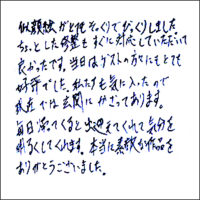 似顔絵がとてもそっくりでびっくりしました
ちょっとした修整もすぐに対応していただいて
良かったです。当日はゲストの方々にもとても
好評でした。私たちも気に入ったので
現在では玄関にかざってあります。
毎日帰ってくると出迎えてくれて気分を
明るくしてくれます。本当に素敵な作品を
ありがとうございました。